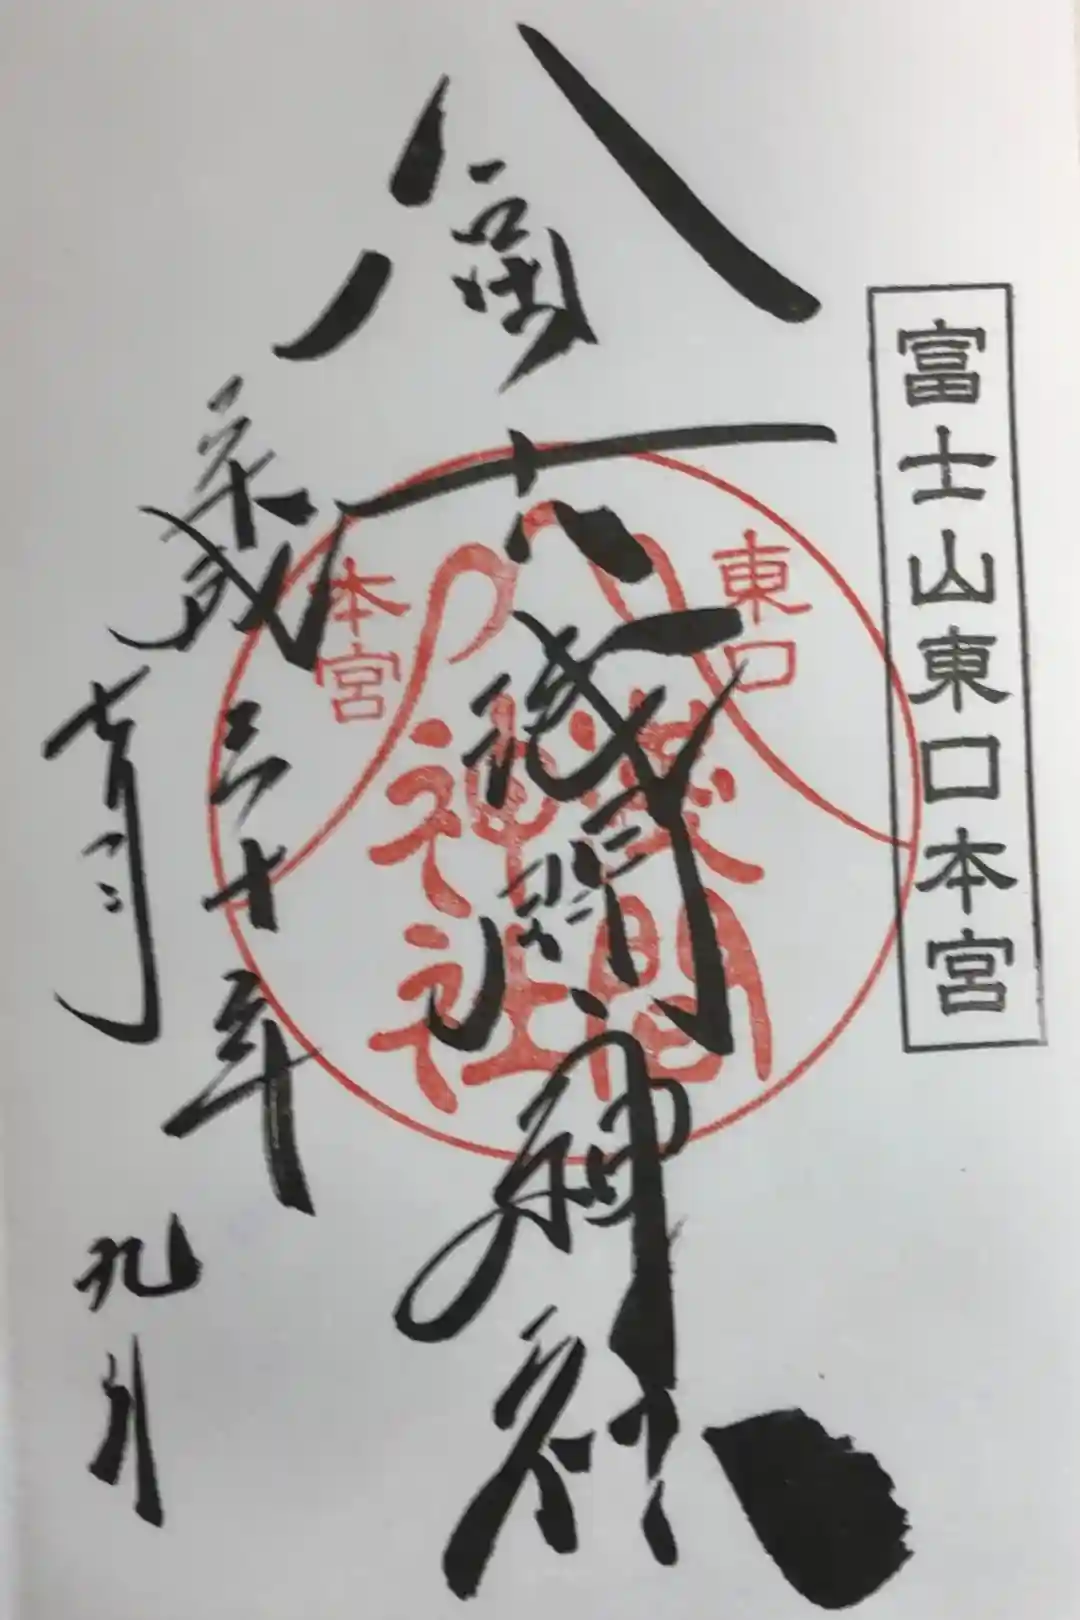 富士山東口本宮
冨士浅間神社
東口
本宮
浅間
神社
平成三十年
七月九日